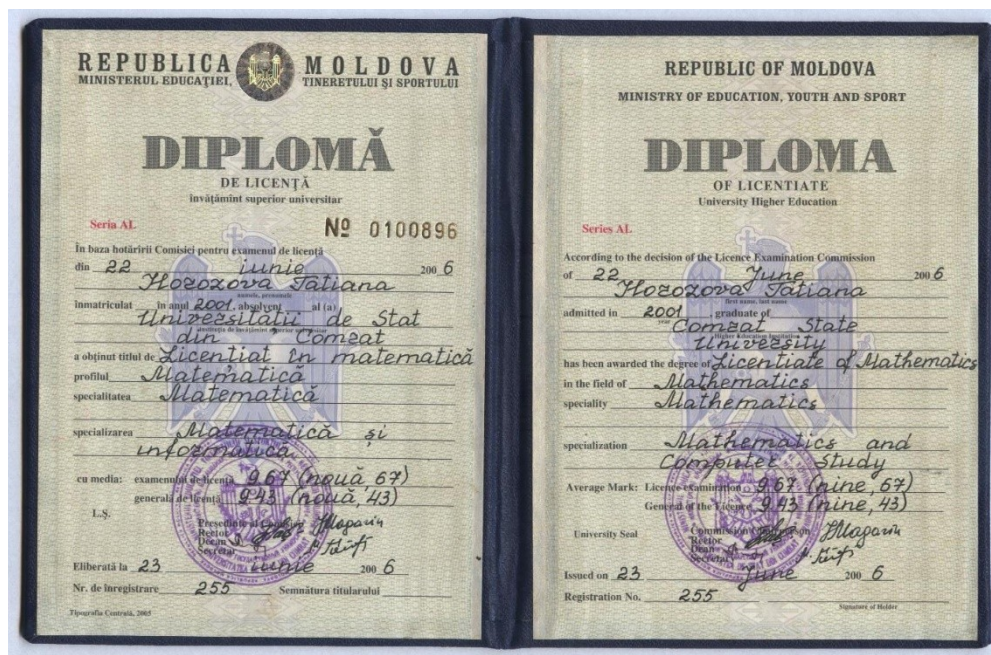 REPUBLICA MOLDOVA
MINISTERUL EDUCAŢIEI, TINERETULUI ŞI SPORTULUI
DIPLOMĂ
DE LICENŢĂ
învăţămînt superior universitar
Seria AL № 0100896
În baza hotărîrii Comisiei pentru examenul de licenţă
din 22 iunie 2006
Tatiana
numele, prenumele
înmatriculat în anul 2001, absolvent al (a)
Universităţii de Stat
instituţia de învăţămînt superior universitar
din Comrat
a obţinut titlul de Licenţiat în matematică
profilul Matematică
specialitatea Matematică
specializarea Matematică şi
informatică
cu media: examenului de licenţă 9.67 (nouă, 67)
generală de licenţă 9.43 (nouă, 43)
L.Ş.
Preşedinte al Comisiei
Rector
Decan
Secretar
Eliberată la 23 iunie 2006
Nr. de înregistrare 255 Semnătura titularului
Tipografia Centrală, 2005
REPUBLIC OF MOLDOVA
MINISTRY OF EDUCATION, YOUTH AND SPORT
DIPLOMA
OF LICENTIATE
University Higher Education
Series AL
According to the decision of the Licence Examination Commission
of 22 June 2006
Tatiana
first name, last name
admitted in 2001, graduate of
year
Comrat State
Higher Education Institution
University
has been awarded the degree of Licentiate of Mathematics
in the field of Mathematics
speciality Mathematics
specialization Mathematics and
Computer Study
Average Mark: Licence examination 9.67 (nine, 67)
General of the Licence 9.43 (nine, 43)
University Seal
Commission Chairperson
Rector
Dean
Secretary
Issued on 23 June 2006
Registration No. 255
Signature of Holder